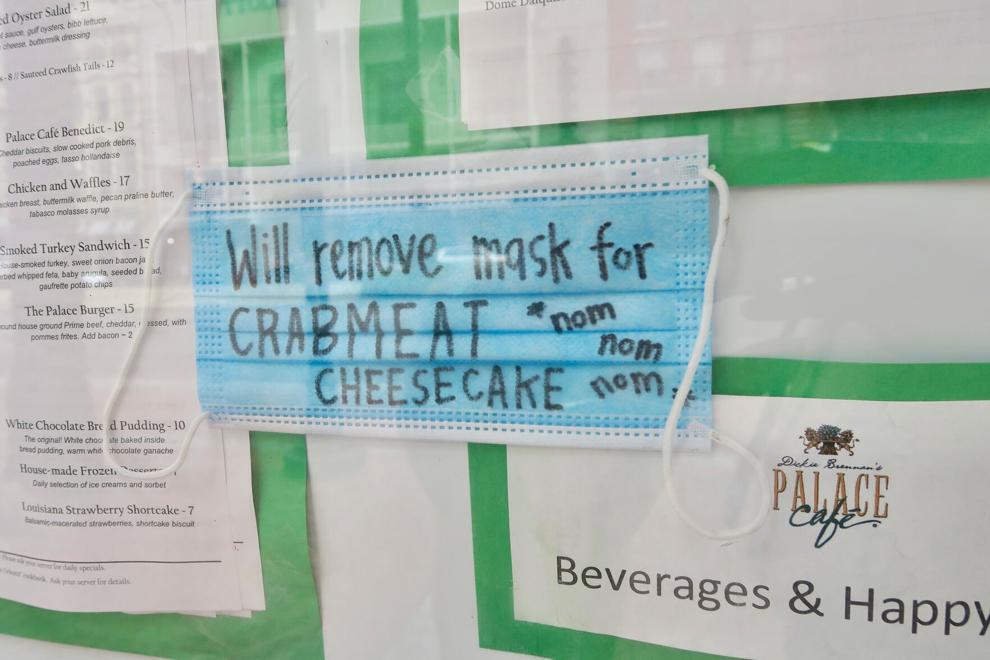 ed Oyster Salad - 21
sauce, gulf oysters, bibb lettuce,
cheese, buttermilk dressing
s - 8 // Sauteed Crawfish Tails - 12
Palace Café Benedict - 19
Cheddar biscuits, slow cooked pork debris,
poached eggs, tasso hollandaise
Chicken and Waffles - 17
cken breast, buttermilk waffle, pecan praline butter,
tabasco molasses syrup
Smoked Turkey Sandwich - 15
House-smoked turkey, sweet onion bacon ja
rbed whipped feta, baby arugula, seeded b ad,
gaufrette potato chips
The Palace Burger - 15
ound house ground Prime beef, cheddar, essed, with
pommes frites. Add bacon ~ 2
White Chocolate Bread Pudding - 10
The original! White chocolate baked inside
bread pudding, warm white chocolate ganache
House-made Frozen Desserts
Daily selection of ice creams and sorbet
Louisiana Strawberry Shortcake - 7
Balsamic-macerated strawberries, shortcake biscuit
Please ask your server for daily specials.
cookbook. Ask your server for details.
Dome Daiqu
Will remove mask for
CRABMEAT *nom
nom
CHEESECAKE nom*
Dickie Brennan's
PALACE
Café
Beverages & Happy